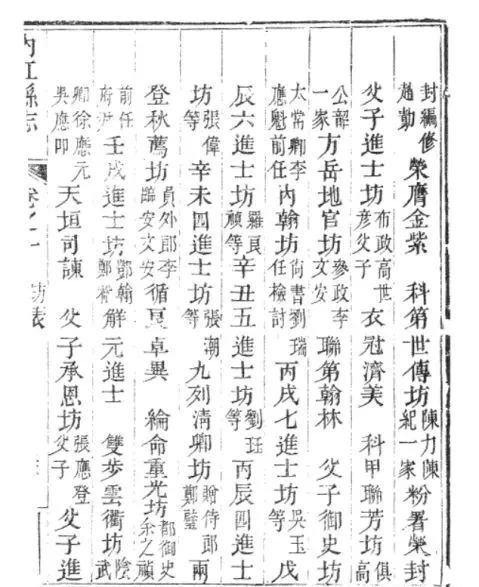 封編修趙勤榮膺金紫 科第世傳坊陳力陳紀一家粉署榮封
父子進士坊布政高世彥父子衣冠濟美 科甲聯芳坊俱高
公韶一家方岳地官坊參政李文安聯第翰林 父子御史坊
太常卿李應魁前任內翰坊尚書劉瑞任檢討丙戌七進士坊吳玉等戊
辰六進士坊羅良禎等辛丑五進士坊劉玨等丙辰四進士
坊張偉等辛未四進士坊張潮等九列清卿坊贈侍郎鄭璧兩
登秋薦坊員外郎李臨安文安循夏卓異 綸命重光坊都御史余之禎
前任府尹壬戌進士坊鄧翰鄭解元進士 雙步雲衢坊陰武
卿徐應元吳應卯天垣司諫 父子承恩坊張應登父子父子進
內江縣志 卷之 坊表